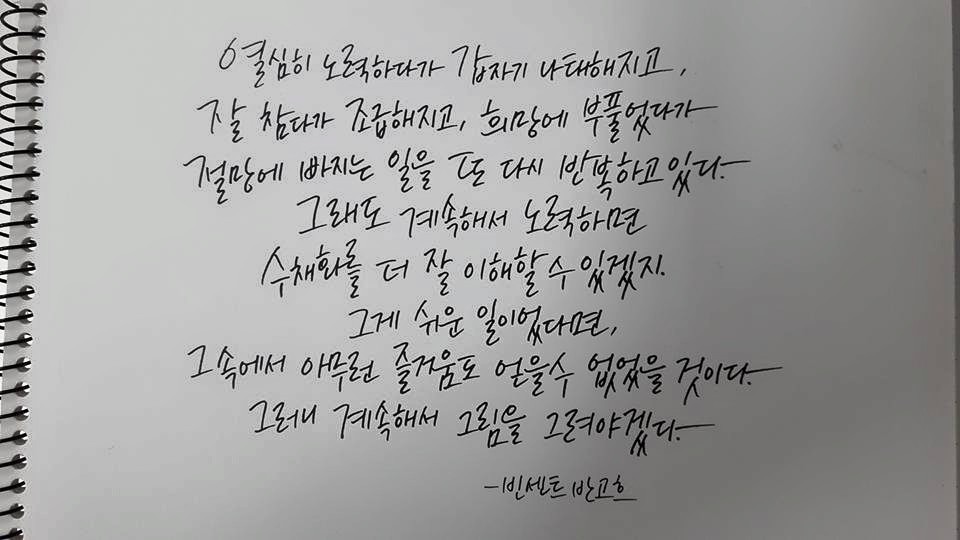 열심히 노력하다가 갑자기 나태해지고,
잘 참다가 조급해지고, 희망에 부풀었다가
절망에 빠지는 일을 또 다시 반복하고 있다.
그래도 계속해서 노력하면
수채화를 더 잘 이해할 수 있겠지.
그게 쉬운 일이었다면,
그 속에서 아무런 즐거움도 얻을 수 없었을 것이다.
그러니 계속해서 그림을 그려야겠다.
-빈센트 반고흐